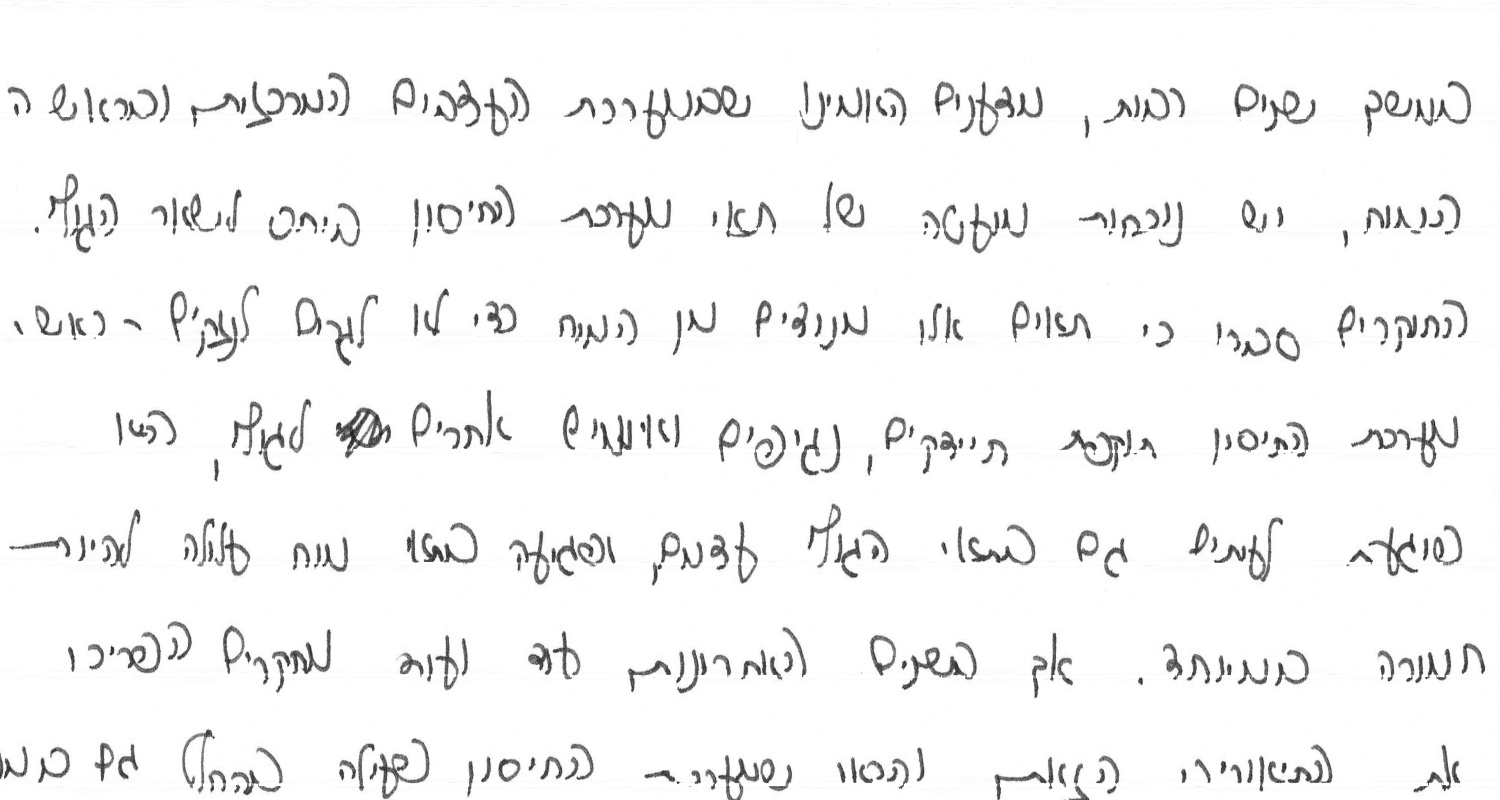 במשך שנים רבות, מדענים האמינו שבמערכת העצבים המרכזית, ובראשה
המוח, יש נוכחות מועטה של תאי מערכת החיסון ביחס לשאר הגוף.
החוקרים סברו כי תאים אלו מנודים מן המוח כדי לא לגרום לנזקים - כאשר
מערכת החיסון תוקפת חיידקים, נגיפים ואיומים אחרים לגוף, היא
פוגעת לעתים גם בתאי הגוף עצמם, ופגיעה בתאי מוח עלולה להיות
חמורה במיוחד. אך בשנים האחרונות עוד ועוד מחקרים הפריכו
את התיאוריה הזאת והראו שמערכת החיסון פעילה בהחלט גם